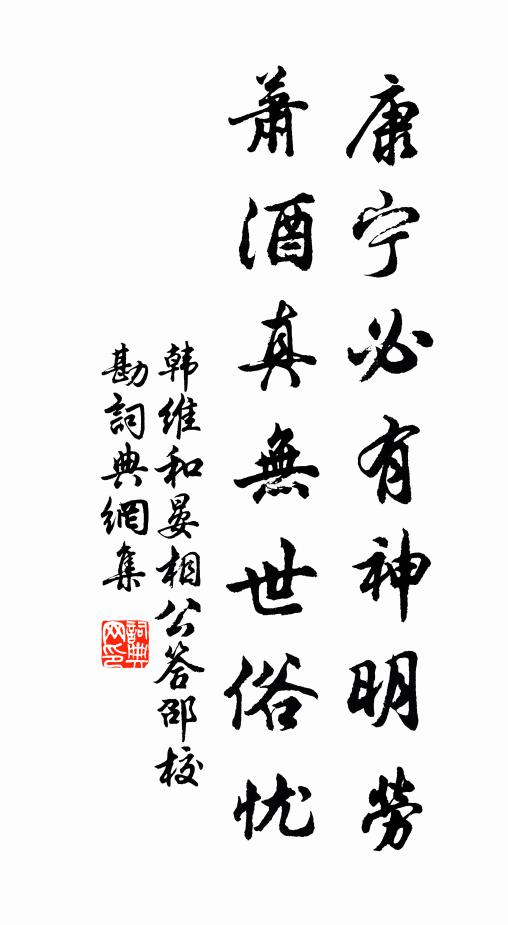 康宁必有神明勞
蕭酒真無世俗忧
韩维和晏相公答邵校
勘詞典網集
詞典网印